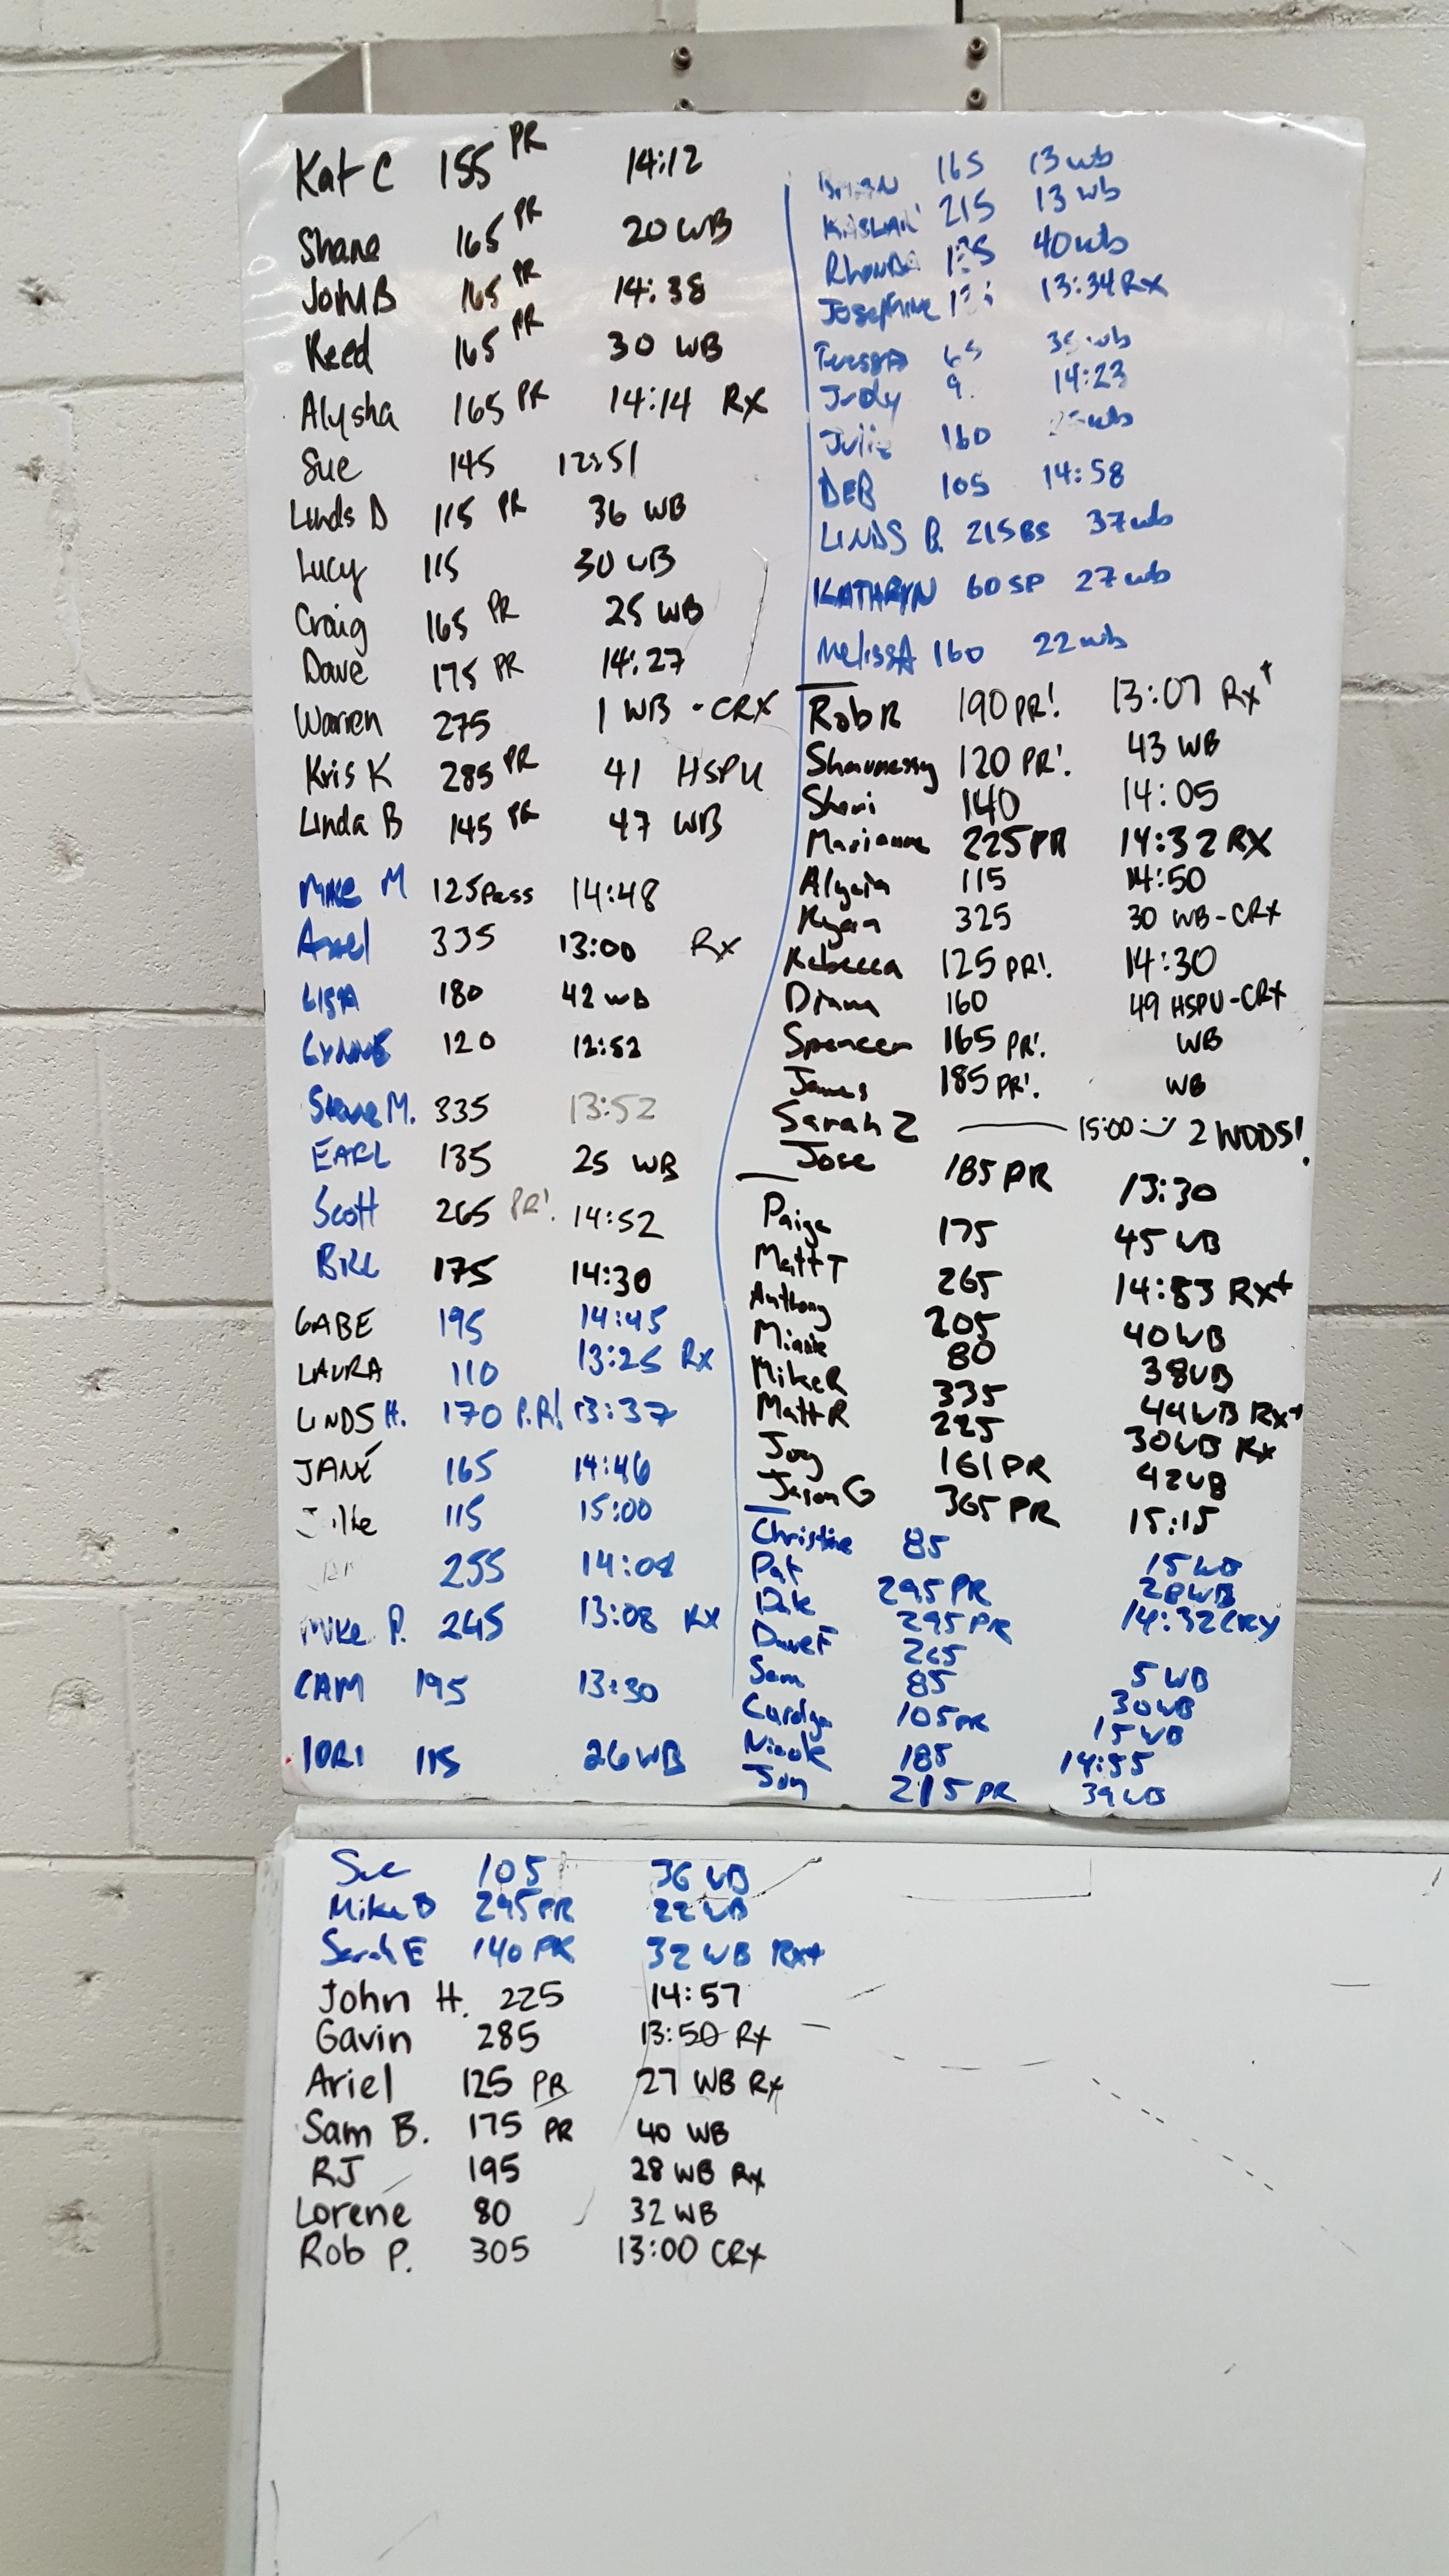 Kat C 155 PR 14:12
Shane 165 PR 20 WB
John B 165 PR 14:38
Reed 165 PR 30 WB
Alysha 165 PR 14:14 Rx
Sue 145 12:51
Linds D 115 PR 36 WB
Lucy 115 30 WB
Craig 165 PR 25 WB
Dave 175 PR 14:27
Warren 275 1 WB - CRX
Kris K 285 PR 41 HSPU
Linda B 145 PR 47 WB
Mike M 125 Pass 14:48
Axel 335 13:00 Rx
LISA 180 42 WB
LYNNE 120 12:52
Steve M. 335 13:52
EARL 135 25 WB
Scott 265 PR! 14:52
BILL 175 14:30
GABE 195 14:45
LAURA 110 13:25 Rx
LINDS H. 170 P.R! 13:37
JANE 165 14:46
115 15:00
255 14:08
Mike P. 245 13:08 RX
CAM 195 13:30
115 26 WB
165 13 wb
215 13 wb
RHONDA 40 wb
Josephine 13:34 Rx
wb
Judy 14:23
Julie 160 wb
DEB 105 14:58
LINDS B. 215 BS 37 wb
KATHRYN 60 SP 27 wb
MELISSA 160 22 wb
Rob R 190 PR! 13:07 Rx+
Shaunessy 120 PR! 43 WB
Sheri 140 14:05
Marianne 225 PR 14:32 RX
115 14:50
Ryan 325 30 WB - CRX
Rebecca 125 PR! 14:30
Diana 160 49 HSPU - CRX
Spencer 165 PR! WB
James 185 PR! WB
Sarah Z 15:00 :) 2 WODS!
Jose 185 PR 13:30
Paige 175 45 WB
Matt T 265 14:53 Rx+
Anthony 205 40 WB
80 38 WB
Mike R 335 44 WB Rx+
Matt R 225 30 WB Rx
Joy 161 PR 42 WB
Jason G 365 PR 15:15
Christine 85 15 WB
Pat 295 PR 28 WB
295 PR 14:32 CRX
Dave F 265
Sam 85 5 WB
Carolyn 105 PR 30 WB
Nicole 185 15 WB
215 PR 14:55
39 WB
Sue 105 36 WB
Mike D 295 PR 22 WB
Sarah E 140 PR 32 WB Rx+
John H. 225 14:57
Gavin 285 13:50 Rx
Ariel 125 PR 27 WB Rx
Sam B. 175 PR 40 WB
RJ 195 28 WB Rx
Lorene 80 32 WB
Rob P. 305 13:00 CRx